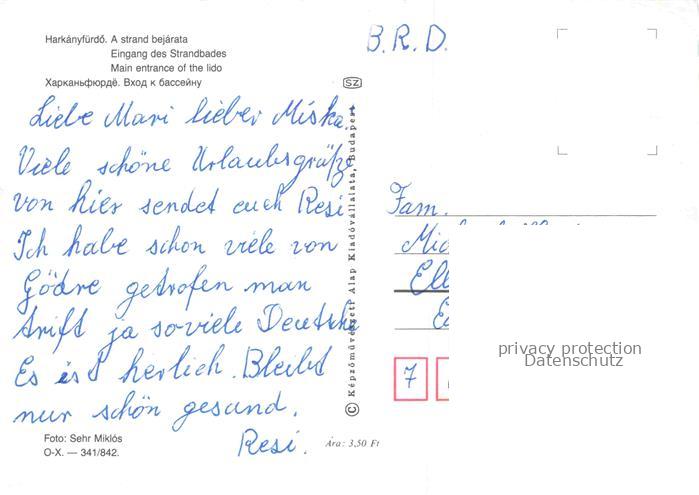 Harkányfürdő. A strand bejárata
Eingang des Strandbades
Main entrance of the lido
Харканьфюрдё. Вход к бассейну
SZ
B.R.D.
Liebe Mari lieber Miska.
Viele schöne Urlaubsgrüße
von hier sendet euch Resi
Ich habe schon viele von
Gödre getrofen man
trift ja soviele Deutsche
Es ist herlich. Bleibt
nur schön gesund.
Resi.
Foto: Sehr Miklós
O-X. — 341/842.
Ára: 3,50 Ft
© Képzőművészeti Alap Kiadóvállalata, Budapest
Fam.
7
privacy protection
Datenschutz